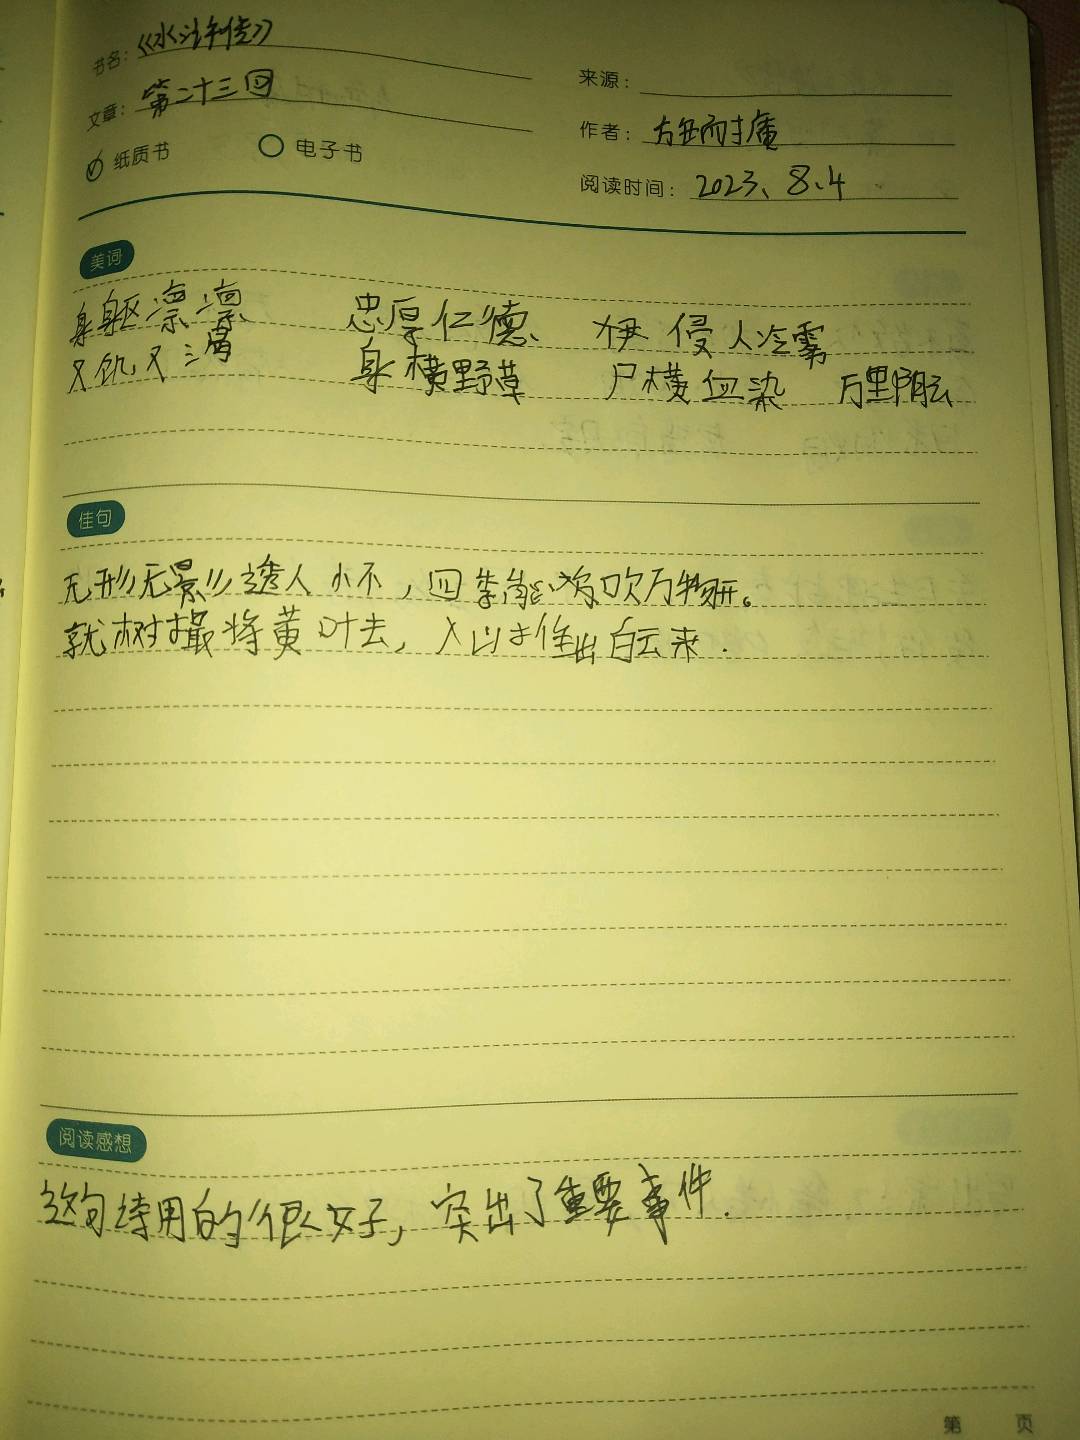 书名：《水浒传》
来源：
文章：第二十三回
作者：施耐庵
纸质书 电子书
阅读时间：2023、8、4
美词
身躯凛凛 忠厚仁德 侵人冷雾
又饥又渴 身横野草 尸横血染 万里阴云
佳句
无形无影透人 不，四季能 吹万物开。
就树撮将黄叶去，入山推出白云来.
阅读感想
这句诗用的很好，突出了重要事件.
第 页